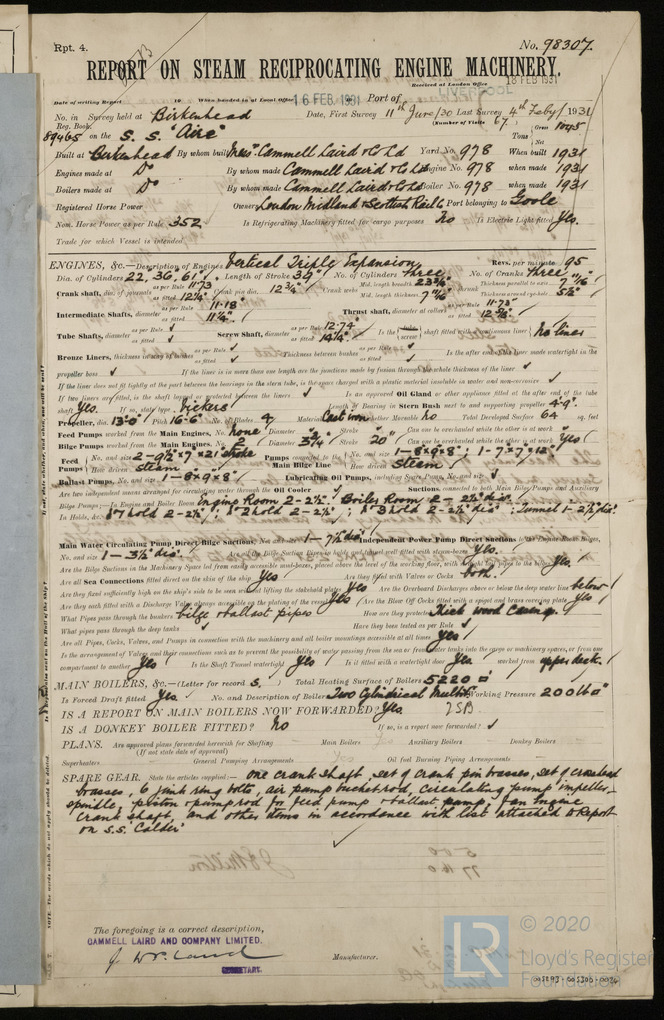 Rpt. 4. No. 98307.
REPORT ON STEAM RECIPROCATING ENGINE MACHINERY.
Received at London Office 18 FEB 1931
Date of writing Report 19 When handed in at Local Office 16 FEB. 1931 Port of
No. in Survey held at Birkenhead Date, First Survey 11th June/30 Last Survey 4th Feby/ 1931
Reg. Book. (Number of Visits 67)
89465 on the S. S. "Aire" Tons Gross 1045 Net
Built at Birkenhead By whom built Messrs. Cammell Laird & Co Ld Yard No. 978 When built 1931
Engines made at Do By whom made Cammell Laird & Co Ld Engine No. 978 when made 1931
Boilers made at Do By whom made Cammell Laird & Co Ld Boiler No. 978 when made 1931
Registered Horse Power Owners London Midland & Scottish Rail Co Port belonging to Goole
Nom. Horse Power as per Rule 352 Is Refrigerating Machinery fitted for cargo purposes No Is Electric Light fitted Yes.
Trade for which Vessel is intended
ENGINES, &c.—Description of Engines Vertical Triple Expansion Revs. per minute 95
Dia. of Cylinders 22, 36, 61 Length of Stroke 39" No. of Cylinders Three No. of Cranks Three
Crank shaft, dia. of journals as per Rule 11.73 as fitted 12¼" Crank pin dia. 12¾" Crank webs Mid. length breadth 23¾" Mid. length thickness 7 11/16" Thickness parallel to axis 7 11/16" Thickness around eye-hole 5½"
Intermediate Shafts, diameter as per Rule 11.18 as fitted 11¼" Thrust shaft, diameter at collars as per Rule 11.73
Tube Shafts, diameter as per Rule as fitted Screw Shaft, diameter as per Rule 12.74 as fitted 14¼" Is the screw shaft fitted with a continuous liner No liner
Bronze Liners, thickness in way of bushes as per Rule as fitted Thickness between bushes as per Rule as fitted Is the after end of the liner made watertight in the
propeller boss If the liner is in more than one length are the junctions made by fusion through the whole thickness of the liner
If the liner does not fit tightly at the part between the bearings in the stern tube, is the space charged with a plastic material insoluble in water and non-corrosive
If two liners are fitted, is the shaft lapped or protected between the liners Is an approved Oil Gland or other appliance fitted at the after end of the tube
shaft Yes. If so, state type Vickers Length of Bearing in Stern Bush next to and supporting propeller 4-9"
Propeller, dia. 13-0" Pitch 16-6" No. of Blades 4 Material Cast iron whether Moveable No Total Developed Surface 64 sq. feet
Feed Pumps worked from the Main Engines, No. None Diameter Stroke Can one be overhauled while the other is at work
Bilge Pumps worked from the Main Engines, No. 2 Diameter 3¾" Stroke 20" Can one be overhauled while the other is at work Yes
Feed Pumps No. and size 2-9½" x 7" x 21" stroke How driven Steam Pumps connected to the Main Bilge Line No. and size 1-8x9x8"; 1-7x7x12" How driven Steam
Ballast Pumps, No. and size 1-8x9x8" Lubricating Oil Pumps, including Spare Pump, No. and size
Are two independent means arranged for circulating water through the Oil Cooler Suctions, connected to both Main Bilge Pumps and Auxiliary
Bilge Pumps:—In Engine and Boiler Room Engine Room 2-2½". Boiler Room 2-2½" dia.
In Holds, &c. No 1 hold 2-2½"; No 2 hold 2-2½"; No 3 hold 2-2½" dia; Tunnel 1-2½" dia.
Main Water Circulating Pump Direct Bilge Suctions, No. and size 1-7½" dia. Independent Power Pump Direct Suctions to the Engine Room Bilges,
No. and size 1-3½" dia. Are all the Bilge Suction Pipes in holds and tunnel well fitted with strum-boxes Yes.
Are the Bilge Suctions in the Machinery Space led from easily accessible mud-boxes, placed above the level of the working floor, with straight tail pipes to the bilges Yes.
Are all Sea Connections fitted direct on the skin of the ship Yes Are they fitted with Valves or Cocks both.
Are they fixed sufficiently high on the ship's side to be seen without lifting the stokehold plates Yes Are the Overboard Discharges above or below the deep water line below
Are they each fitted with a Discharge Valve always accessible on the plating of the vessel Yes Are the Blow Off Cocks fitted with a spigot and brass covering plate Yes
What Pipes pass through the bunkers bilge & ballast pipes How are they protected Thick wood Casing.
What pipes pass through the deep tanks Have they been tested as per Rule
Are all Pipes, Cocks, Valves, and Pumps in connection with the machinery and all boiler mountings accessible at all times Yes
Is the arrangement of Valves and their connections such as to prevent the possibility of water passing from the sea or from water tanks into the cargo or machinery spaces, or from one
compartment to another Yes Is the Shaft Tunnel watertight Yes Is it fitted with a watertight door Yes worked from upper deck.
MAIN BOILERS, &c.—(Letter for record S.) Total Heating Surface of Boilers 5220 □'
Is Forced Draft fitted Yes. No. and Description of Boilers Two Cylindrical Multitr Working Pressure 200 lb □"
IS A REPORT ON MAIN BOILERS NOW FORWARDED? Yes 2SB
IS A DONKEY BOILER FITTED? No If so, is a report now forwarded?
PLANS. Are approved plans forwarded herewith for Shafting Main Boilers Auxiliary Boilers Donkey Boilers
(If not state date of approval)
Superheaters General Pumping Arrangements Oil fuel Burning Piping Arrangements
SPARE GEAR. State the articles supplied:— One crank shaft, set of crank pin brasses, set of crosshead
brasses, 6 junk ring bolts, air pump bucket rod, circulating pump impeller
spindle, piston & pump rod for feed pump & ballast pump, fan engine
crank shaft, and other items in accordance with list attached to Report
on S.S. Calder
The foregoing is a correct description,
CAMMELL LAIRD AND COMPANY LIMITED.
SECRETARY. Manufacturer.
© 2020
LR Lloyd's Register
Foundation